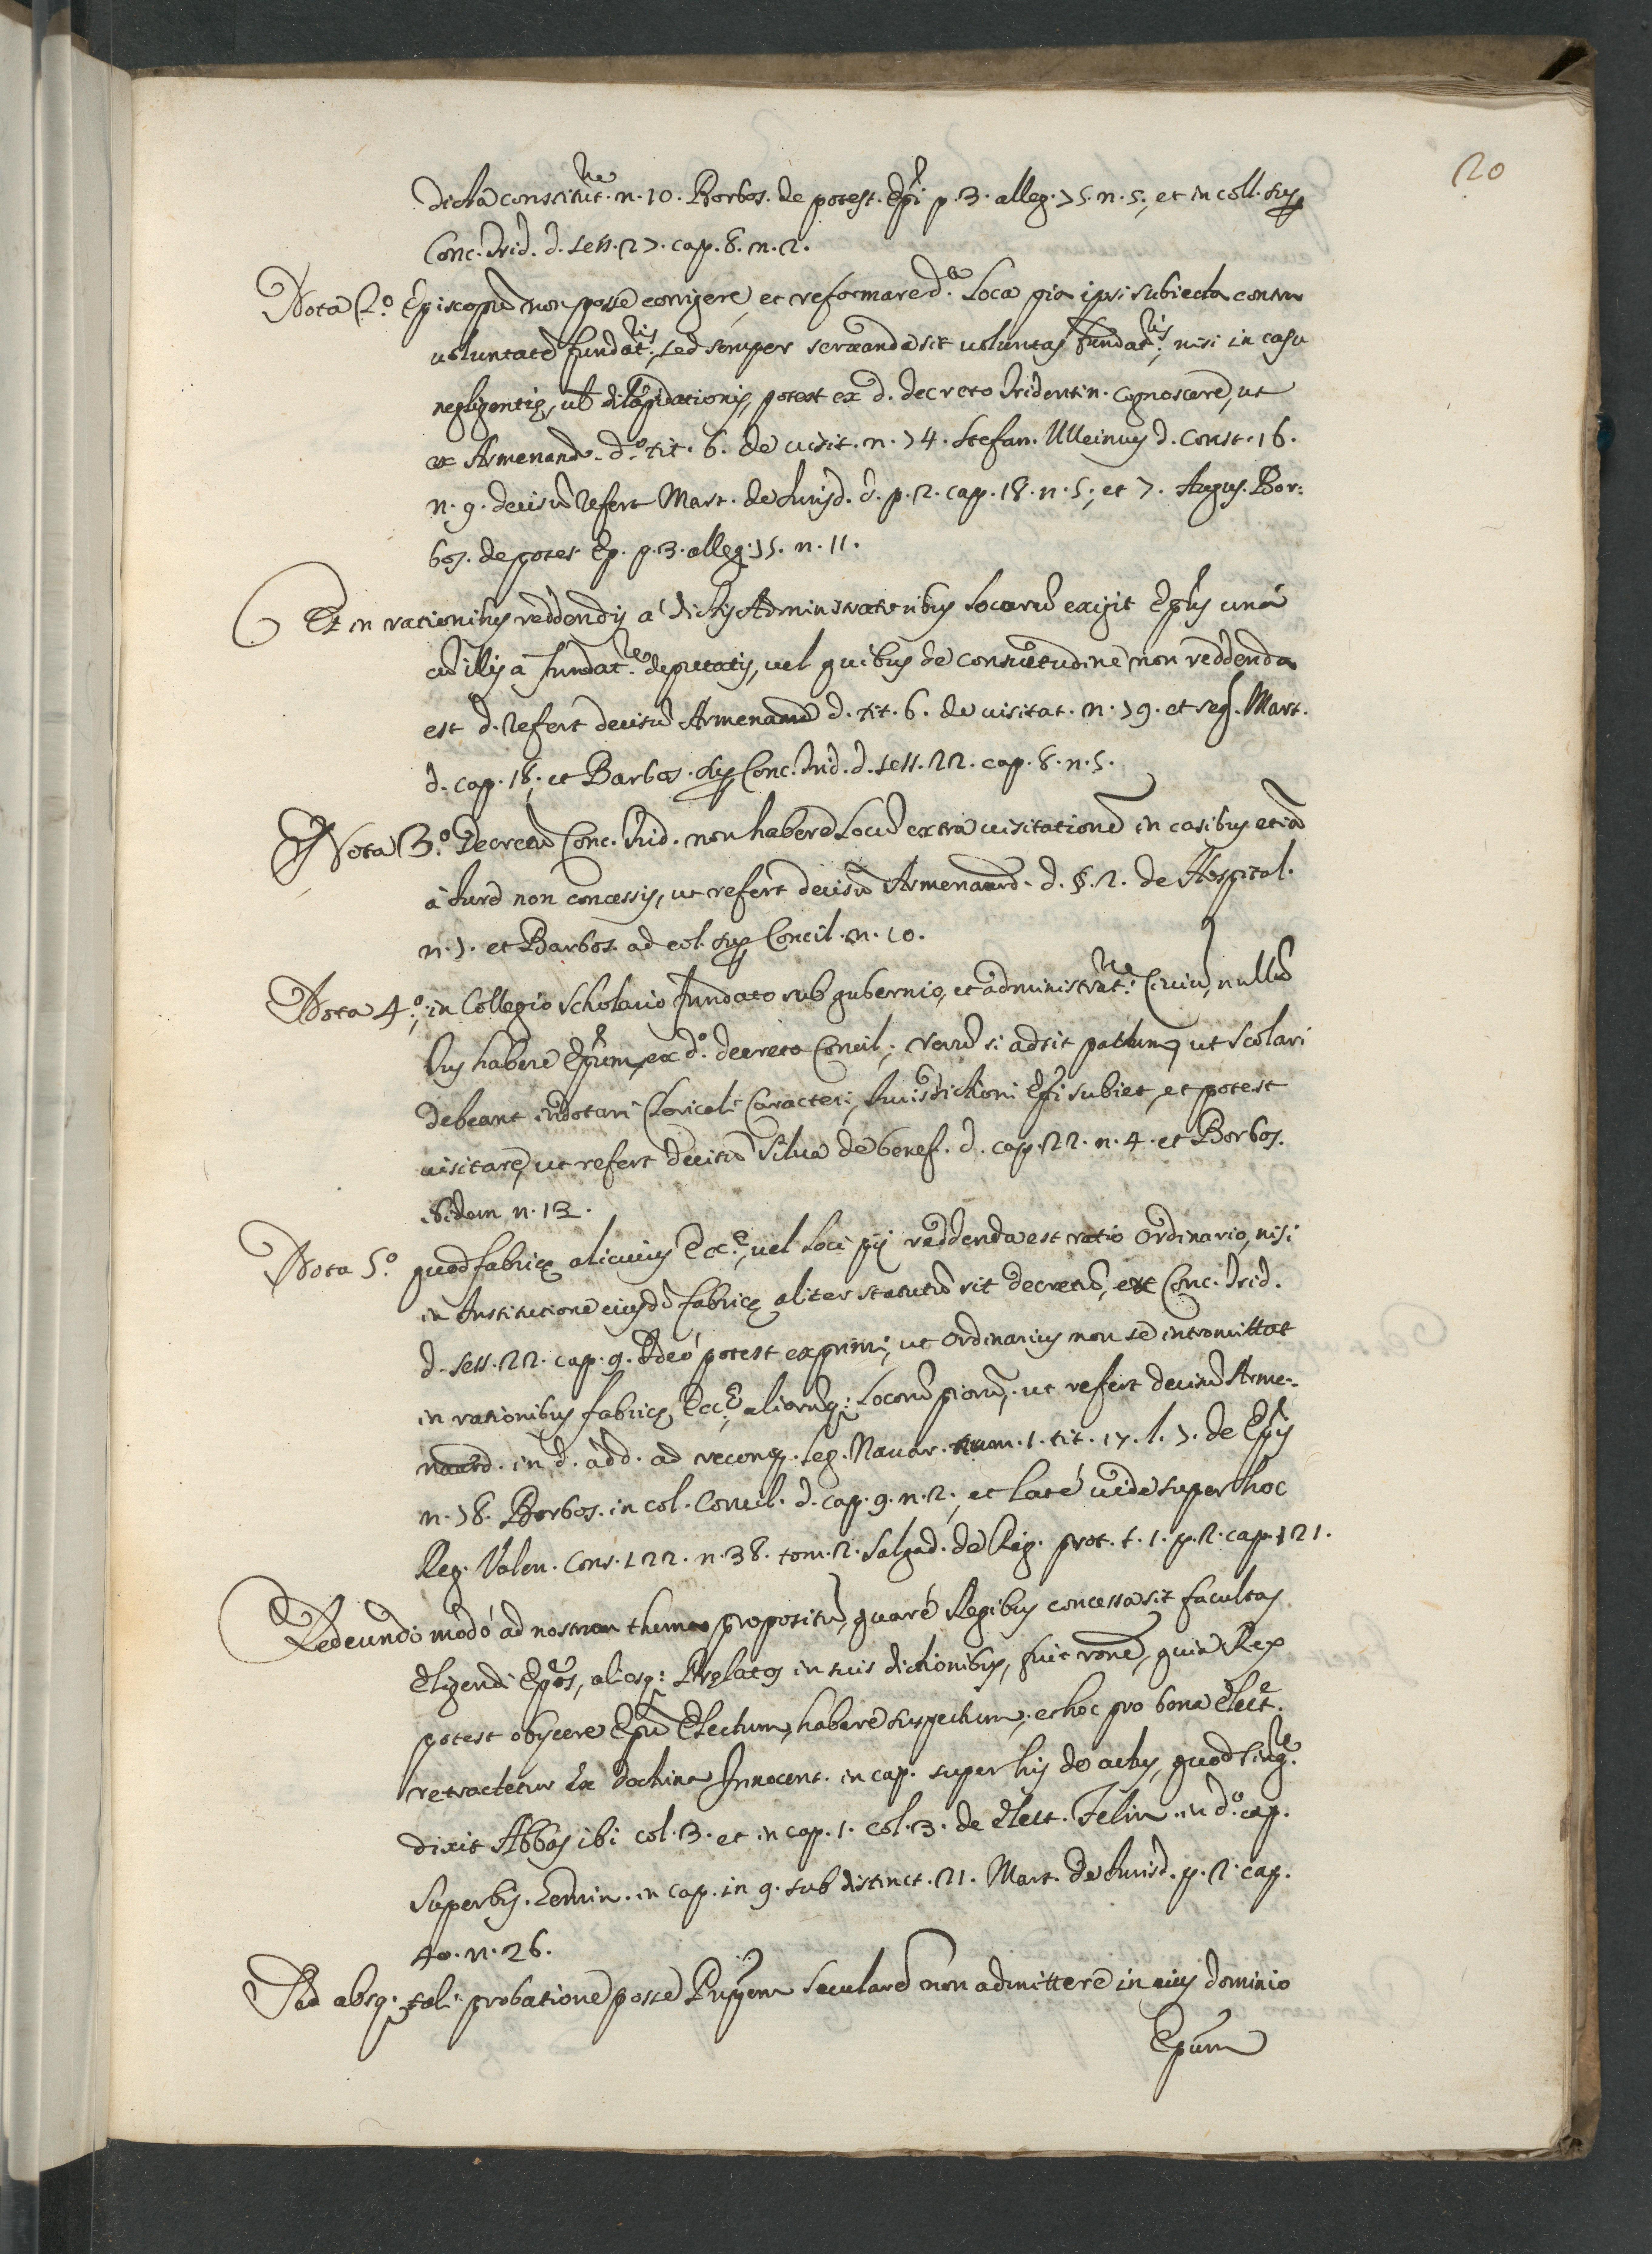 20
dicta constitut.ne n. 10. Barbos. de potest. Epi p. 3. alleg. 75. n. 5., et in coll. sup
Conc. Trid. d. sess. 27. cap. 8. n. 2.
Nota 2.º Episcopũ non posse corrigere, et reformare d.a Loca pia ipsi subiecta contra
voluntatẽ fundat.ris, sed semper servanda sit voluntas fundat.ris, nisi in casu
negligentię, vł dilapidationis, potest ex d. decreto Tridentin. cognoscere, ut
ex Armenand. d.º tit. 6. de visit. n. 74. Stefan. Weinus d. const. 16.
n. 9. decisũ refert Mart. de Jurisd. d. p. 2. cap. 18. n. 5., et 7. Augus. Bar:
bos. de potes. Ep. p. 3. alleg. 75. n. 11.
Et in rationibus reddendis a' dictis Administratoribus Locorũ exigit Epus unà
cũ illis à fundat.re deputatis, vel quibus de consuetudine non reddenda
est d. refert decisũ Armenand d. tit. 6. de visitat. n. 79. et seq. Mart.
d. cap. 18., et Barbos. sup Conc. Trid. d. sess. 22. cap. 8. n. 5.
Nota 3.º Decretũ Conc. Trid. non habere Locũ extra visitationẽ in casibus etiã
à Jure non concessis, ut refert decisũ Armenand. d. §. 2. de Hospital.
n. 7. et Barbos. ad col. sup Concil. n. 10.
Nota 4.º, in Collegio Scholario fundato sub gubernio, et administrat.ne Civiũ, nullũ
Jus habere Epum, ex d.º decreto Concil., verũ si adsit pactum, ut scolari
debeant indotari Clericali Caracteri, Jurisdictioni Epi subiet, et potest
visitare, ut refert decisũ Silva de benef. d. cap. 22. n. 4. et Barbos.
ibidem n. 13.
Nota 5.º quod fabricę alicuius Ecc.ę, vel Loci pij reddenda est ratio Ordinario, nisi
in Institutione eiusdẽ fabricę aliter statutũ sit decretũ, ex Conc. Trid.
d. sess. 22. cap. 9. Adeò potest exprimi, ut Ordinarius non se intromittat
in rationibus fabricę Ecc.ę, aliorũq: Locorũ piorũ, ut refert decisũ Arme-
nand. in d. add. ad recomp. leg. Navar. num. 1. tit. 17. l. 7. de Epis
n. 78. Barbos. in col. Concil. d. cap. 9. n. 2., et latè vide super hoc
Reg. Valen. Cons. 122. n. 38. tom. 2. Salgad. de Reg. prot. t. 1. p. 2. cap. 121.
Redeundo modò ad nostrum thema propositũ, quarè Regibus concessa sit facultas
Eligendi Epos, aliosq: Pręlatos in suis dictionibus, fuit rone, quia Rex
potest obijcere Epũ Electum, habere suspectum, et hoc pro bona elect.
retractetur Ex doctrina Innocent. in cap. super his de actus, quod sing.re
dixit Abbas ibi col. 3. et in cap. 1. col. 3. de elect. Felin. in d.º cap.
Super his. in cap. in 9. sub distinct. 21. Mart. de Jurisd. p. 2. cap.
40. n. 26.
Sed absq. tali probatione posse Pripem secularẽ non admittere in eius dominio
Epum